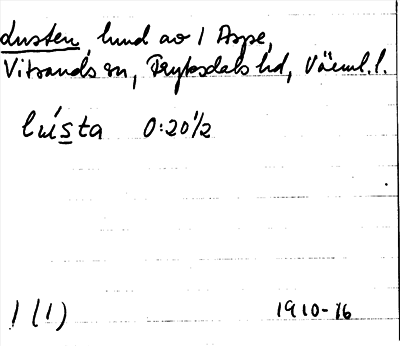 Lusten, hmd av 1 Aspe,
Vitsands sn, Fryksdals hd, Värml. l.
luísta 0:20½
1 (1) 1910-16